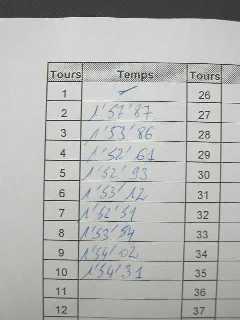 Tours Temps Tours
1 26
2 1'57'87 27
3 1'53'86 28
4 1'52'61 29
5 1'52'93 30
6 1'53'12 31
7 1'52'51 32
8 1'53'54 33
9 1'54'02 34
10 1'54'31 35
11 36
12 37